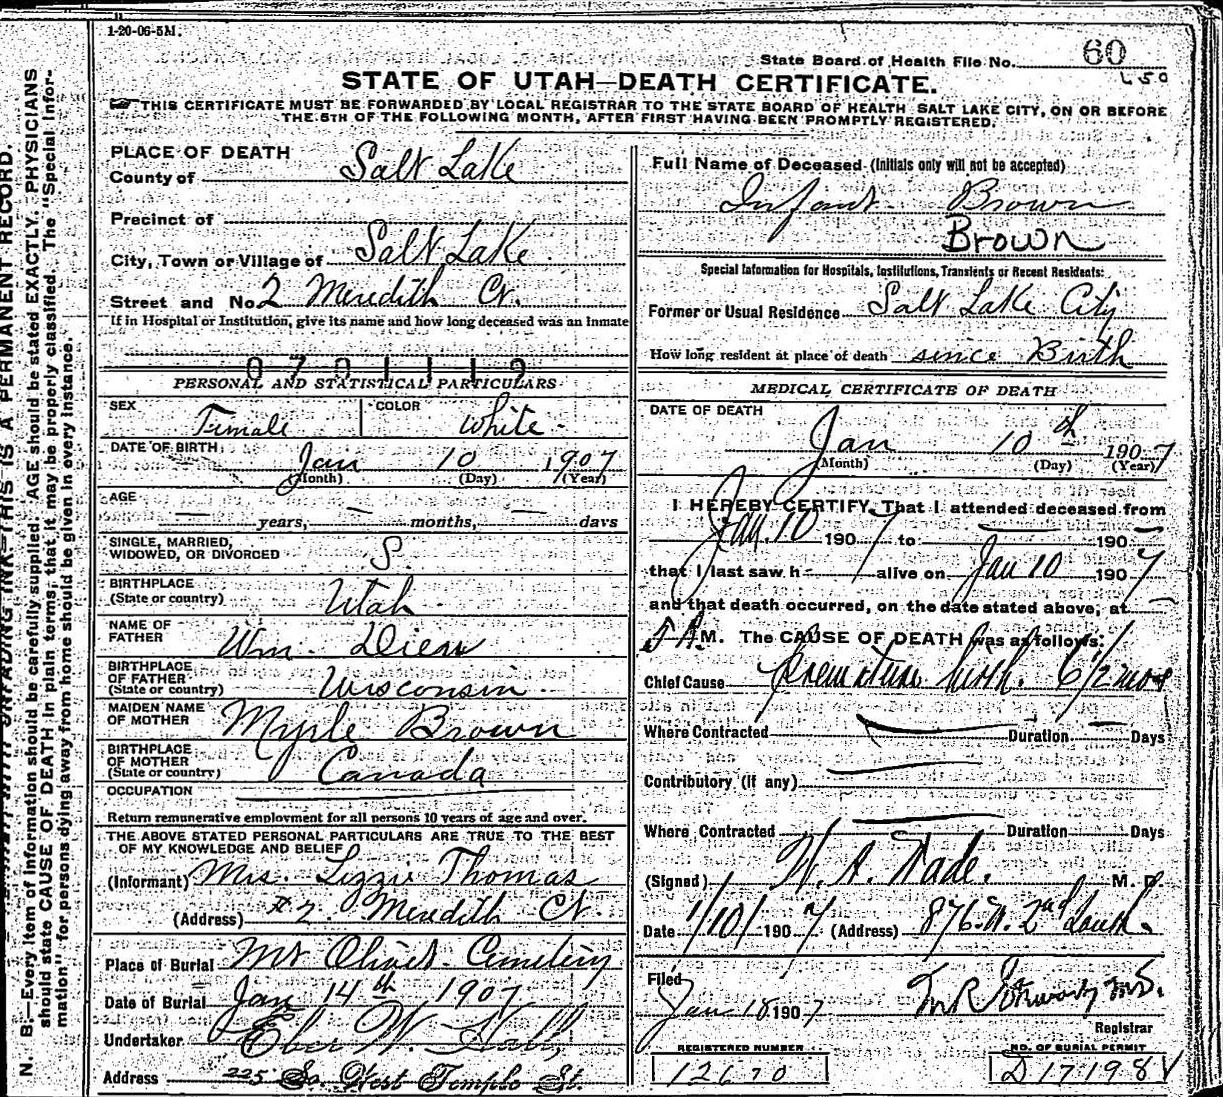 1-20-06-5M.
State Board of Health File No. 60
L50
STATE OF UTAH—DEATH CERTIFICATE.
THIS CERTIFICATE MUST BE FORWARDED BY LOCAL REGISTRAR TO THE STATE BOARD OF HEALTH SALT LAKE CITY, ON OR BEFORE
THE 5TH OF THE FOLLOWING MONTH, AFTER FIRST HAVING BEEN PROMPTLY REGISTERED.
PLACE OF DEATH
County of Salt Lake
Precinct of
City, Town or Village of Salt Lake
Street and No. 2 Meredith Ct.
If in Hospital or Institution, give its name and how long deceased was an inmate
0701119
PERSONAL AND STATISTICAL PARTICULARS
SEX Female COLOR White
DATE OF BIRTH: Jan 10 1907
(Month) (Day) (Year)
AGE
— years, — months, — days
SINGLE, MARRIED,
WIDOWED, OR DIVORCED S.
BIRTHPLACE
(State or country) Utah
NAME OF
FATHER Wm.
BIRTHPLACE
OF FATHER
(State or country) Wisconsin
MAIDEN NAME
OF MOTHER Myrle Brown
BIRTHPLACE
OF MOTHER
(State or country) Canada
OCCUPATION
Return remunerative employment for all persons 10 years of age and over.
THE ABOVE STATED PERSONAL PARTICULARS ARE TRUE TO THE BEST
OF MY KNOWLEDGE AND BELIEF
(Informant) Mrs. Lizzie Thomas
(Address) #2 Meredith Ct.
Place of Burial Mt Olivet Cemetery
Date of Burial Jan 14th 1907
Undertaker Eber W. Hall
Address 225 So. West Temple St.
Full Name of Deceased (Initials only will not be accepted)
Infant Brown
Brown
Special Information for Hospitals, Institutions, Transients or Recent Residents:
Former or Usual Residence Salt Lake City
How long resident at place of death since Birth
MEDICAL CERTIFICATE OF DEATH
DATE OF DEATH
Jan 10th 1907
(Month) (Day) (Year)
I HEREBY CERTIFY, That I attended deceased from
Jan. 10 1907 to — 190—
that I last saw h— alive on Jan 10 1907
and that death occurred, on the date stated above, at
5 A.M. The CAUSE OF DEATH was as follows:
Chief Cause premature birth. 6 1/2 mos
Where Contracted — Duration — Days
Contributory (if any) —
Where Contracted — Duration Days
(Signed) M. D.
Date 1/10/1907 (Address) 876 2nd South.
Filed
Jan 18 1907
Registrar
REGISTERED NUMBER
12670
NO. OF BURIAL PERMIT
D17198
N. B.—Every item of information should be carefully supplied. AGE should be stated EXACTLY. PHYSICIANS
should state CAUSE OF DEATH in plain terms, that it may be properly classified. The "Special Infor-
mation" for persons dying away from home should be given in every instance.
UNFADING INK—THIS IS A PERMANENT RECORD.